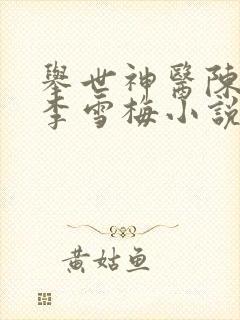 舉世神醫陳
李雪梅小說
黃姑鱼